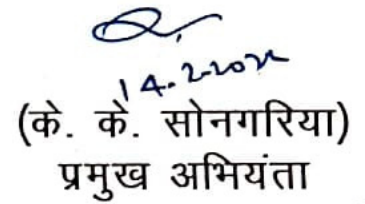 14.2.2022
(के. के. सोनगरिया)
प्रमुख अभियंता